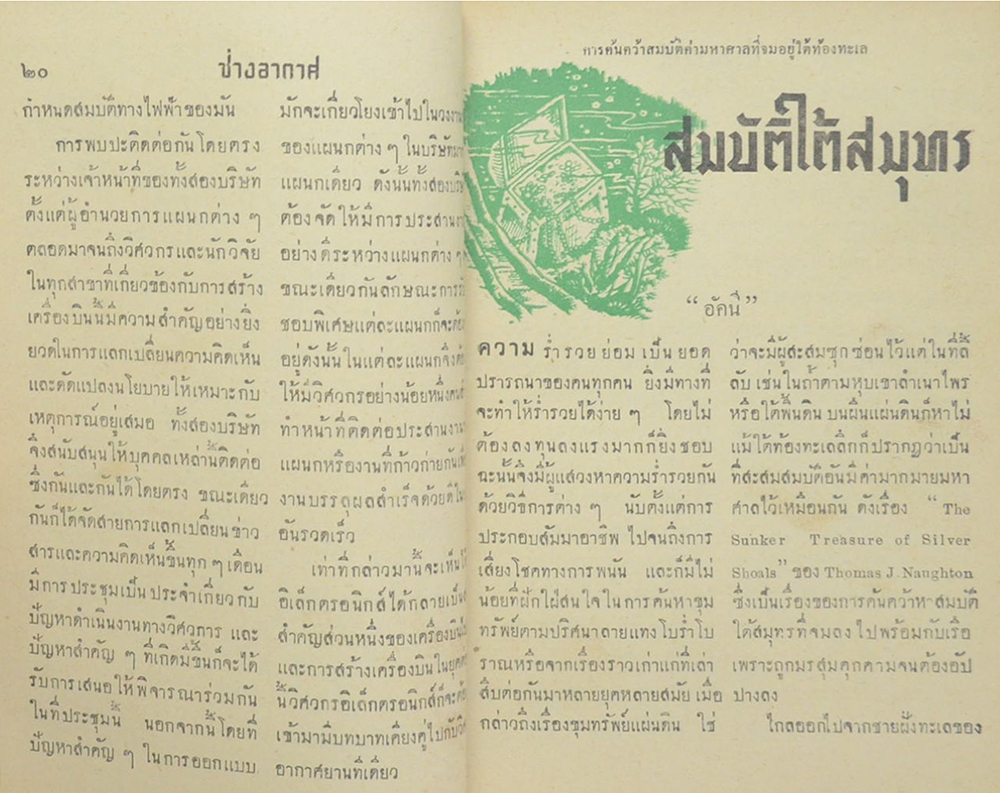 ๒๐
ช่างอากาศ
กำหนดสมบัติทางไฟฟ้าของมัน
การพบปะติดต่อกันโดยตรง
ระหว่างเจ้าหน้าที่ของทั้งสองบริษัท
ตั้งแต่ผู้อำนวยการแผนกต่าง ๆ
ตลอดมาจนถึงวิศวกรและนักวิจัย
ในทุกสาขาที่เกี่ยวข้องกับการสร้าง
เครื่องบินนี้มีความสำคัญอย่างยิ่ง
ยวดในการแลกเปลี่ยนความคิดเห็น
และดัดแปลงนโยบายให้เหมาะกับ
เหตุการณ์อยู่เสมอ ทั้งสองบริษัท
จึงสนับสนุนให้บุคคลเหล่านี้ติดต่อ
ซึ่งกันและกันได้โดยตรง ขณะเดียว
กันก็ได้จัดสายการแลกเปลี่ยนข่าว
สารและความคิดเห็นขึ้นทุก ๆ เดือน
มีการประชุมเป็นประจำเกี่ยวกับ
ปัญหาดำเนินงานทางวิศวการ และ
ปัญหาสำคัญ ๆ ที่เกิดมีขึ้นก็จะได้
รับการเสนอให้พิจารณาร่วมกัน
ในที่ประชุมนี้ นอกจากนี้โดยที่
ปัญหาสำคัญ ๆ ในการออกแบบ
มักจะเกี่ยวโยงเข้าไปในวงงาน
ของแผนกต่าง ๆ ในบริษัท
แผนกเดียว ดังนั้นทั้งสอง
ต้องจัดให้มีการประสาน
อย่างดีระหว่างแผนกต่าง ๆ
ขณะเดียวกันลักษณะการ
ชอบพิเศษแต่ละแผนกก็จะ
อยู่ดังนั้นในแต่ละแผนกจึง
ให้มีวิศวกรอย่างน้อยหนึ่งคน
ทำหน้าที่ติดต่อประสานงาน
แผนกหรืองานที่ก้าวก่ายกัน
งานบรรลุผลสำเร็จด้วยดี
อันรวดเร็ว
เท่าที่กล่าวมานี้จะเห็น
อิเล็กตรอนิกส์ได้กลายเป็น
สำคัญส่วนหนึ่งของเครื่องบิน
และการสร้างเครื่องบินในยุค
นี้วิศวกรอิเล็กตรอนิกส์ก็จะ
เข้ามามีบทบาทเคียงคู่ไปกับ
อากาศยานที่เดียว
การค้นคว้าสมบัติค่ามหาศาลที่จมอยู่ใต้ท้องทะเล
สมบัติใต้สมุทร
“อัคนี”
ความ ร่ำรวยย่อมเป็นยอด
ปรารถนาของคนทุกคน ยิ่งมีทางที่
จะทำให้ร่ำรวยได้ง่าย ๆ โดยไม่
ต้องลงทุนลงแรงมากก็ยิ่งชอบ
ฉะนั้นจึงมีผู้แสวงหาความร่ำรวยกัน
ด้วยวิธีการต่าง ๆ นับตั้งแต่การ
ประกอบสัมมาอาชีพ ไปจนถึงการ
เสี่ยงโชคทางการพนัน และก็มีไม่
น้อยที่ฝักใฝ่สนใจในการค้นหาขุม
ทรัพย์ตามปริศนาลายแทงโบร่ำโบ
ราณหรือจากเรื่องราวเก่าแก่ที่เล่า
สืบต่อกันมาหลายยุคหลายสมัย เมื่อ
กล่าวถึงเรื่องขุมทรัพย์แผ่นดิน ใช่
ว่าจะมีผู้สะสมซุกซ่อนไว้แต่ในที่ลี้
ลับ เช่นในถ้ำตามหุบเขาลำเนาไพร
หรือใต้พื้นดิน บนผืนแผ่นดินก็หาไม่
แม้ใต้ท้องทะเลลึกก็ปรากฏว่าเป็น
ที่สะสมสมบัติอันมีค่ามากมายมหา
ศาลไว้เหมือนกัน ดังเรื่อง “The
Sunker Treasure of Silver
Shoals” ของ Thomas J. Naughton
ซึ่งเป็นเรื่องของการค้นคว้าหาสมบัติ
ใต้สมุทรที่จมลงไปพร้อมกับเรือ
เพราะถูกมรสุมคุกคามจนต้องอัป
ปางลง
ไกลออกไปจากชายฝั่งทะเลของ